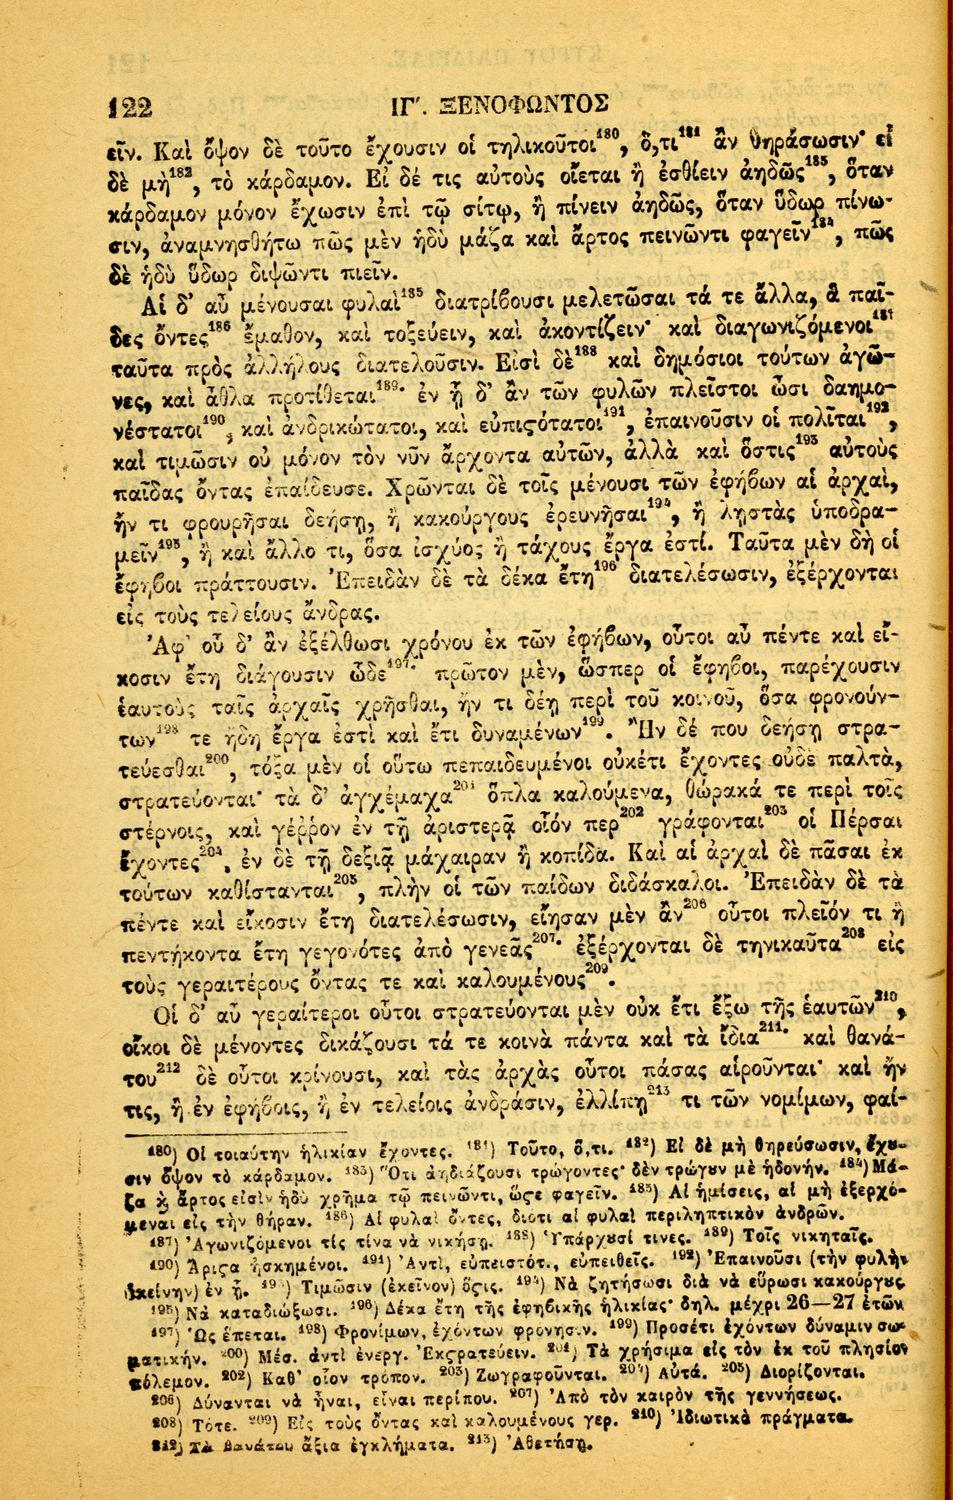 122 ΙΓʹ. ΞΕΝΟΦΩΝΤΟΣ
εῖν. Καὶ ὄψον δὲ τοῦτο ἔχουσιν οἱ τηλικοῦτοι¹⁸⁰, ὅ,τι¹⁸¹ ἂν θηράσωσιν· εἰ
δὲ μὴ¹⁸², τὸ κάρδαμον. Εἰ δέ τις αὐτοὺς οἴεται ἢ ἐσθίειν ἀηδῶς¹⁸³, ὅταν
κάρδαμον μόνον ἔχωσιν ἐπὶ τῷ σίτῳ, ἢ πίνειν ἀηδῶς, ὅταν ὕδωρ πίνω-
σιν, ἀναμνησθήτω πῶς μὲν ἡδὺ μάζα καὶ ἄρτος πεινῶντι φαγεῖν¹⁸⁴, πῶς
δὲ ἡδὺ ὕδωρ διψῶντι πιεῖν.
Αἱ δ’ αὖ μένουσαι φυλαὶ¹⁸⁵ διατρίβουσι μελετῶσαι τά τε ἄλλα, ἃ παῖ-
δες ὄντες¹⁸⁶ ἔμαθον, καὶ τοξεύειν, καὶ ἀκοντίζειν· καὶ διαγωνιζόμενοι¹⁸⁷
ταῦτα πρὸς ἀλλήλους διατελοῦσιν. Εἰσὶ δὲ¹⁸⁸ καὶ δημόσιοι τούτων ἀγῶ-
νες, καὶ ἆθλα προτίθεται¹⁸⁹· ἐν ᾗ δ’ ἂν τῶν φυλῶν πλεῖστοι ὦσι δαημο-
νέστατοι¹⁹⁰, καὶ ἀνδρικώτατοι, καὶ εὐπιϛότατοι¹⁹¹, ἐπαινοῦσιν οἱ πολῖται¹⁹²,
καὶ τιμῶσιν οὐ μόνον τὸν νῦν ἄρχοντα αὐτῶν, ἀλλὰ καὶ ὅστις¹⁹³ αὐτοὺς
παῖδας ὄντας ἐπαίδευσε. Χρῶνται δὲ τοῖς μένουσι τῶν ἐφήβων αἱ ἀρχαὶ,
ἤν τι φρουρῆσαι δεήσῃ, ἢ κακούργους ἐρευνῆσαι¹⁹⁴, ἢ λῃστὰς ὑποδρα-
μεῖν¹⁹⁵, ἢ καὶ ἄλλο τι, ὅσα ἰσχύος ἢ τάχους ἔργα ἐστί. Ταῦτα μὲν δὴ οἱ
ἔφηβοι πράττουσιν. Ἐπειδὰν δὲ τὰ δέκα ἔτη¹⁹⁶ διατελέσωσιν, ἐξέρχονται
εἰς τοὺς τελείους ἄνδρας.
Ἀφ’ οὗ δ’ ἂν ἐξέλθωσι χρόνου ἐκ τῶν ἐφήβων, οὗτοι αὖ πέντε καὶ εἴ-
κοσιν ἔτη διάγουσιν ὧδε¹⁹⁷· πρῶτον μὲν, ὥσπερ οἱ ἔφηβοι, παρέχουσιν
ἑαυτοὺς ταῖς ἀρχαῖς χρῆσθαι, ἤν τι δέῃ περὶ τοῦ κοινοῦ, ὅσα φρονούν-
των¹⁹⁸ τε ἤδη ἔργα ἐστὶ καὶ ἔτι δυναμένων¹⁹⁹. Ἢν δέ που δεήσῃ στρα-
τεύεσθαι²⁰⁰, τόξα μὲν οἱ οὕτω πεπαιδευμένοι οὐκέτι ἔχοντες οὐδὲ παλτὰ,
στρατεύονται· τὰ δ’ ἀγχέμαχα²⁰¹ ὅπλα καλούμενα, θώρακά τε περὶ τοῖς
στέρνοις, καὶ γέῤῥον ἐν τῇ ἀριστερᾷ οἷόν περ²⁰² γράφονται²⁰³ οἱ Πέρσαι
ἔχοντες²⁰⁴, ἐν δὲ τῇ δεξιᾷ μάχαιραν ἢ κοπίδα. Καὶ αἱ ἀρχαὶ δὲ πᾶσαι ἐκ
τούτων καθίστανται²⁰⁵, πλὴν οἱ τῶν παίδων διδάσκαλοι. Ἐπειδὰν δὲ τὰ
πέντε καὶ εἴκοσιν ἔτη διατελέσωσιν, εἴησαν μὲν ἂν²⁰⁶ οὗτοι πλεῖόν τι ἢ
πεντήκοντα ἔτη γεγονότες ἀπὸ γενεᾶς²⁰⁷· ἐξέρχονται δὲ τηνικαῦτα²⁰⁸ εἰς
τοὺς γεραιτέρους ὄντας τε καὶ καλουμένους²⁰⁹.
Οἱ δ’ αὖ γεραίτεροι οὗτοι στρατεύονται μὲν οὐκ ἔτι ἔξω τῆς ἑαυτῶν²¹⁰,
οἴκοι δὲ μένοντες δικάζουσι τά τε κοινὰ πάντα καὶ τὰ ἴδια²¹¹· καὶ θανά-
του²¹² δὲ οὗτοι κρίνουσι, καὶ τὰς ἀρχὰς οὗτοι πάσας αἱροῦνται· καὶ ἤν
τις, ἢ ἐν ἐφήβοις, ἢ ἐν τελείοις ἀνδράσιν, ἐλλίπῃ²¹³ τι τῶν νομίμων, φαί-
180) Οἱ τοιαύτην ἡλικίαν ἔχοντες. 181) Τοῦτο, ὅ,τι. 182) Εἰ δὲ μὴ θηρεύσωσιν, ἔχȣ-
σιν ὄψον τὸ κάρδαμον. 183) Ὅτι ἀηδιάζουσι τρώγοντες· δὲν τρώγȣν μὲ ἡδονήν. 184) Μά-
ζα ϗ ἄρτος εἰσὶν ἡδὺ χρῆμα τῷ πεινῶντι, ὥϛε φαγεῖν. 185) Αἱ ἡμίσεις, αἱ μὴ ἐξερχό-
μεναι εἰς τὴν θήραν. 186) Αἱ φυλαὶ ὄντες, διότι αἱ φυλαὶ περιληπτικὸν ἀνδρῶν.
187) Ἀγωνιζόμενοι τίς τίνα νὰ νικήσῃ. 188) Ὑπάρχȣσί τινες. 189) Τοῖς νικηταῖς.
190) Ἄριϛα ἠσκημένοι. 191) Ἀντὶ, εὐπειστότ., εὐπειθεῖς. 192) Ἐπαινοῦσι (τὴν φυλὴν
ἐκείνην) ἐν ᾗ. 193) Τιμῶσιν (ἐκεῖνον) ὅϛις. 194) Νὰ ζητήσωσι διὰ νὰ εὕρωσι κακούργȣς.
195) Νὰ καταδιώξωσι. 196) Δέκα ἔτη τῆς ἐφηβικῆς ἡλικίας· δηλ. μέχρι 26—27 ἐτῶν
197) Ὡς ἕπεται. 198) Φρονίμων, ἐχόντων φρόνησιν. 199) Προσέτι ἐχόντων δύναμιν σω-
ματικήν. 200) Μέσ. ἀντὶ ἐνεργ. Ἐκϛρατεύειν. 201) Τὰ χρήσιμα εἰς τὸν ἐκ τοῦ πλησίον
πόλεμον. 202) Καθ’ οἷον τρόπον. 203) Ζωγραφοῦνται. 204) Αὐτά. 205) Διορίζονται.
206) Δύνανται νὰ ἦναι, εἶναι περίπου. 207) Ἀπὸ τὸν καιρὸν τῆς γεννήσεως.
208) Τότε. 209) Εἰς τοὺς ὄντας καὶ καλουμένους γερ. 210) Ἰδιωτικὰ πράγματα.
212) Τὰ θανάτου ἄξια ἐγκλήματα. 213) Ἀθετήσῃ.